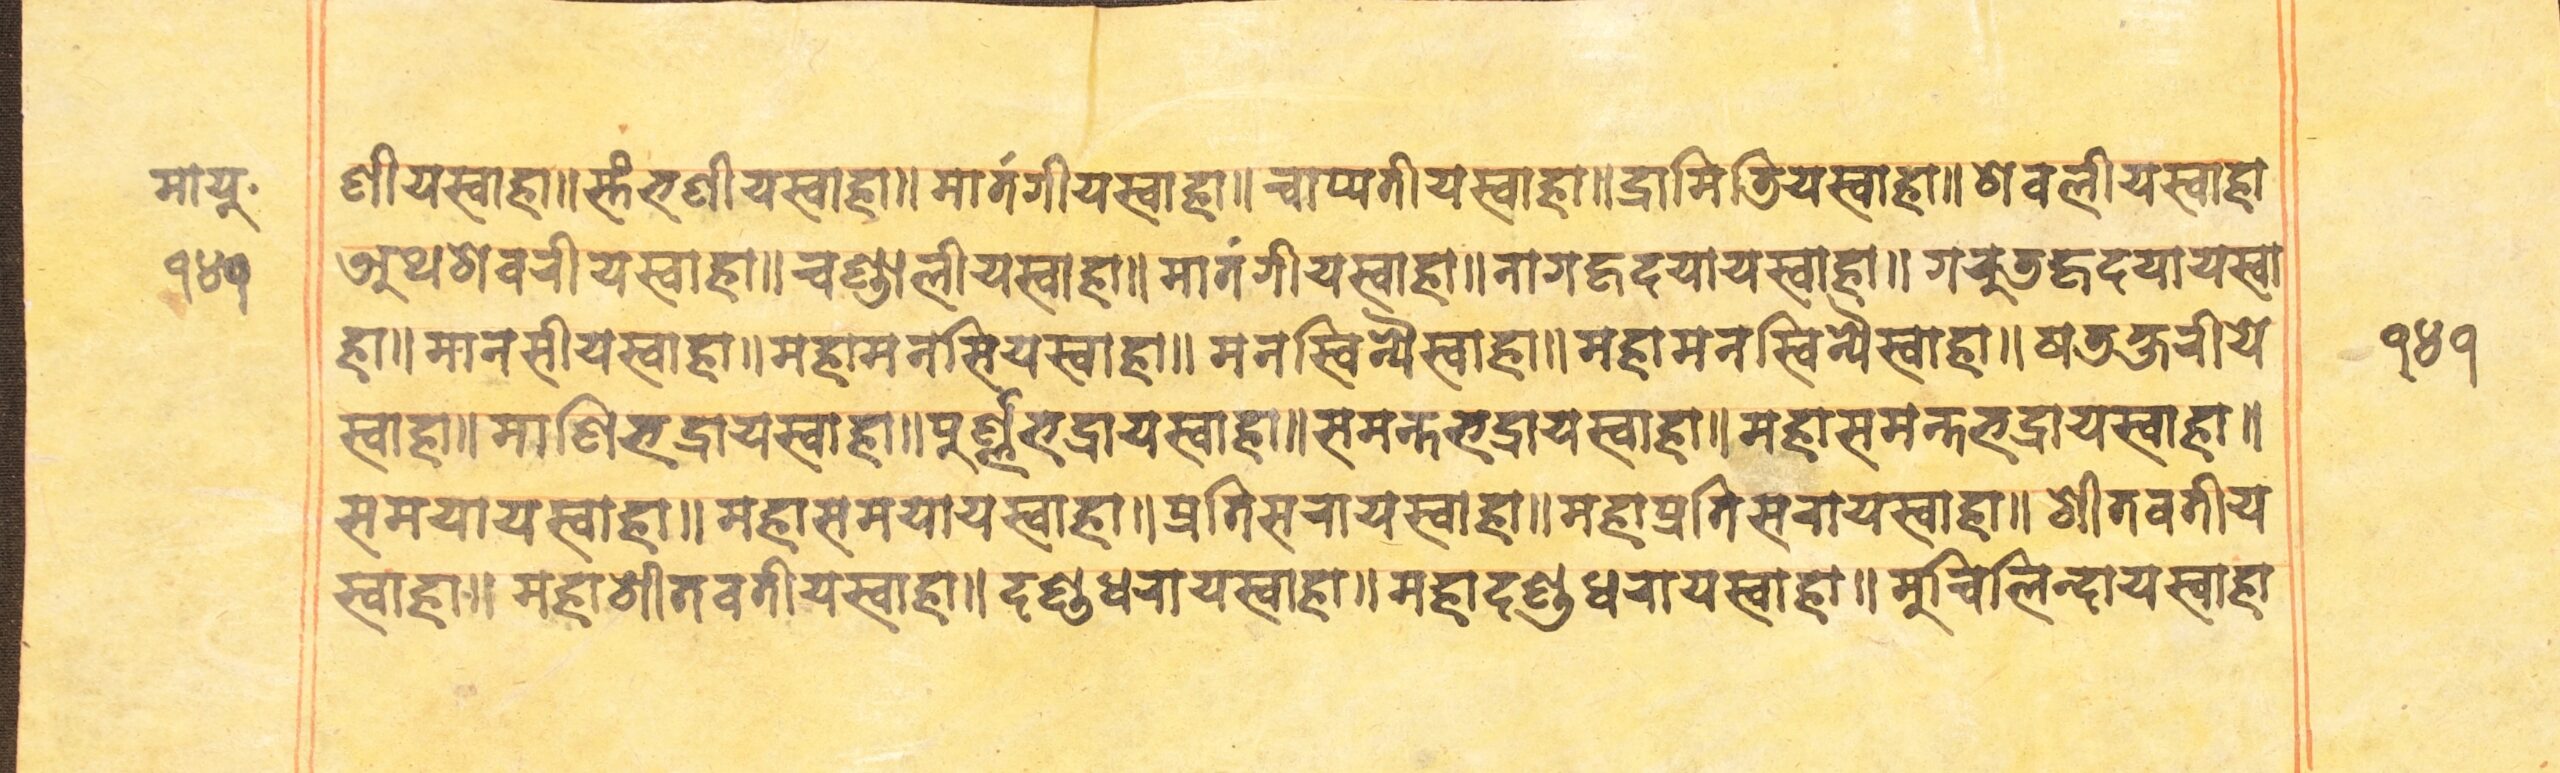 मायु.
१४१
णीयस्वाहा॥स्तंभणीयस्वाहा॥मातंगीयस्वाहा॥चाप्यतीयस्वाहा॥द्रामितियस्वाहा॥शेवलीयस्वाहा
अथशेवरीयस्वाहा॥चण्डालीयस्वाहा॥मातंगीयस्वाहा॥नागहृदयायस्वाहा॥गरुडहृदयायस्वा
हा॥मानसीयस्वाहा॥महामनसियस्वाहा॥मनस्विन्यैस्वाहा॥महामनस्विन्यैस्वाहा॥षडक्षरीये
स्वाहा॥माणिभद्रायस्वाहा॥पुर्ण्णभद्रायस्वाहा॥समन्तभद्रायस्वाहा॥महासमन्तभद्रायस्वाहा॥
समयायस्वाहा॥महासमयायस्वाहा॥प्रतिसरायस्वाहा॥महाप्रतिसरायस्वाहा॥शीतवतीय
स्वाहा॥महाशीतवतीयस्वाहा॥दण्डधरायस्वाहा॥महादण्डधरायस्वाहा॥मुचिलिन्दायस्वाहा
१४१